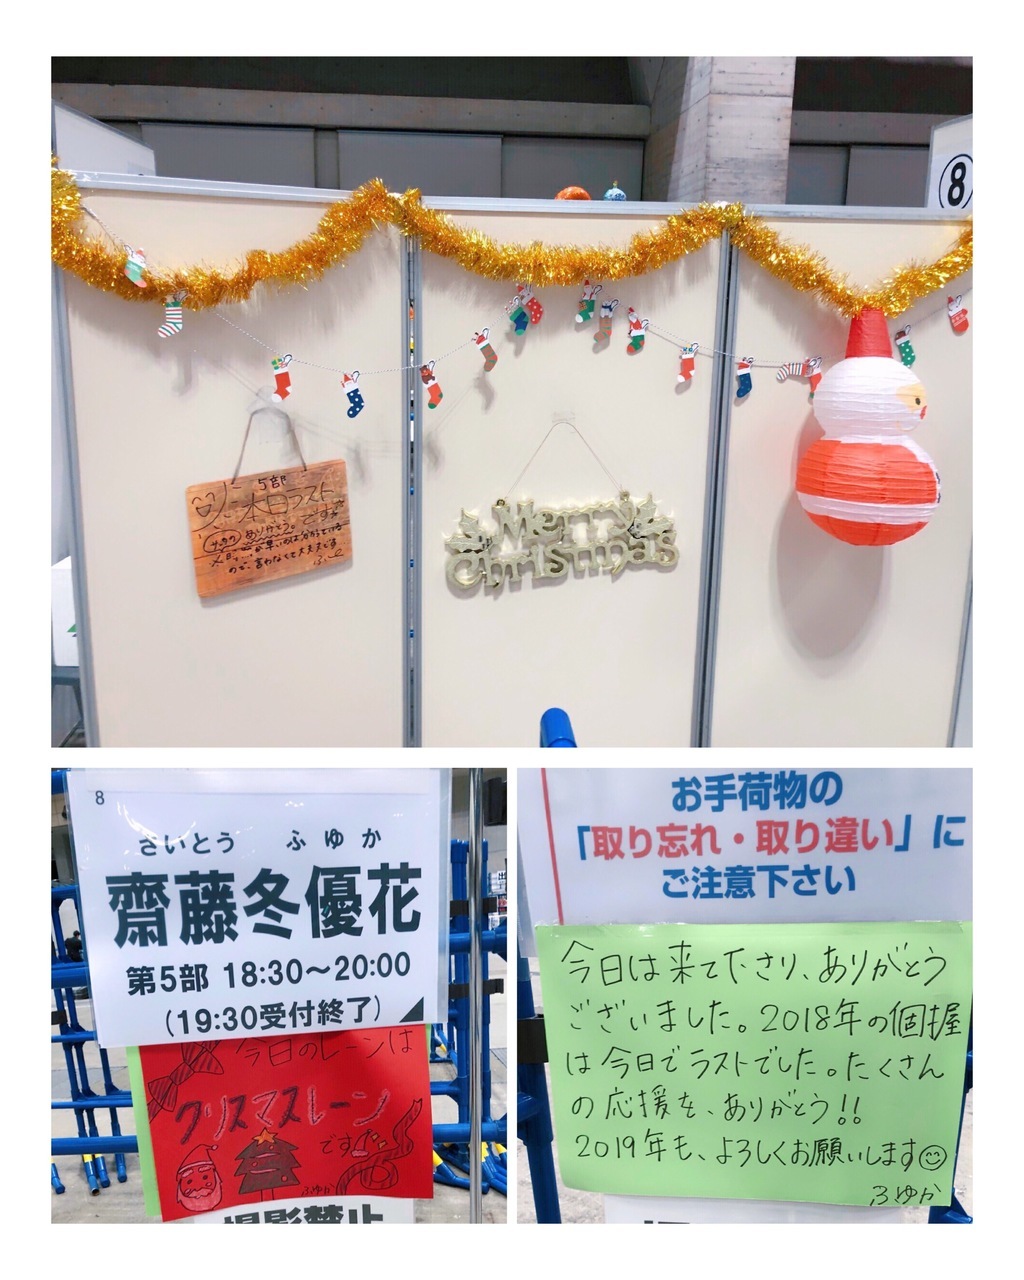 ⑧
5部
本日ラスト
です
ありがとう。
ので、言わなくて大丈夫です
Merry
Christmas
8
さいとう ふゆか
齋藤冬優花
第5部 18:30～20:00
(19:30受付終了)
今日のレーンは
クリスマスレーン
です
ふゆか
撮影禁止
お手荷物の
「取り忘れ・取り違い」に
ご注意下さい
今日は来て下さり、ありがとう
ございました。2018年の個握
は今日でラストでした。たくさん
の応援を、ありがとう!!
2019年も、よろしくお願いします☺
ふゆか